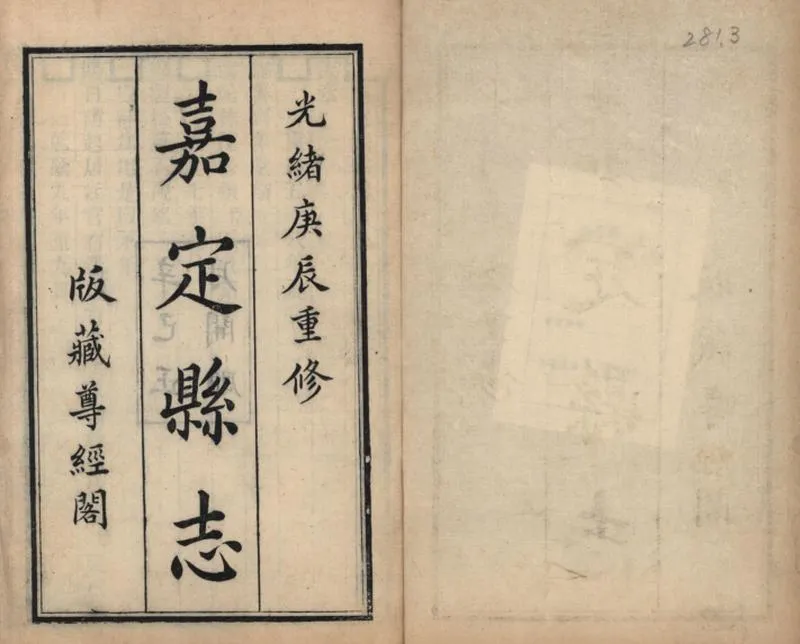 光緒庚辰重修
嘉定縣志
版藏尊經閣
281.3